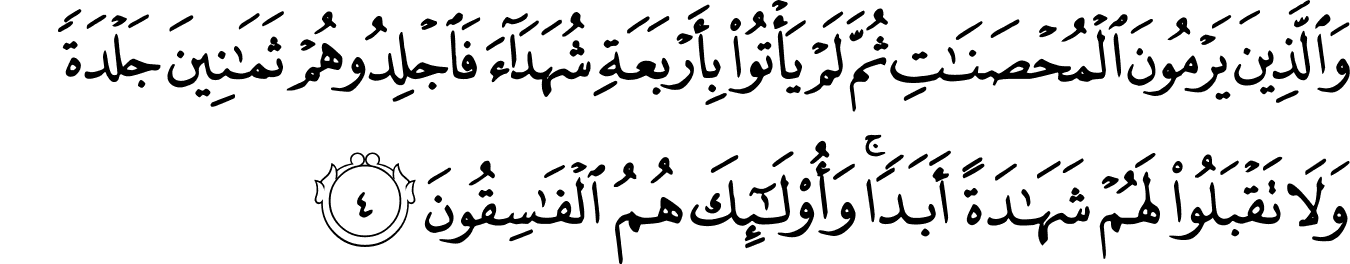 وَٱلَّذِينَ يَرْمُونَ ٱلْمُحْصَنَـٰتِ ثُمَّ لَمْ يَأْتُوا۟ بِأَرْبَعَةِ شُهَدَآءَ فَٱجْلِدُوهُمْ ثَمَـٰنِينَ جَلْدَةً
وَلَا تَقْبَلُوا۟ لَهُمْ شَهَـٰدَةً أَبَدًا ۚ وَأُو۟لَـٰٓئِكَ هُمُ ٱلْفَـٰسِقُونَ ٤